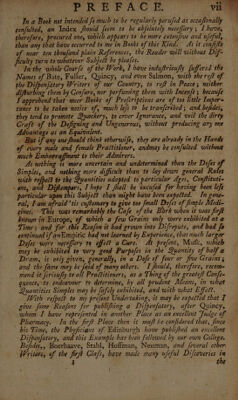 PREFACE. vii
In a Book not intended so much to be regularly perused as occasionally
consulted, an Index should seem to be absolutely necessary; I have,
therefore, procured one, which appears to be more extensive and useful,
than any that have occurred to me in Books of this Kind. As it consists
of near ten thousand plain References, the Reader will without Dif-
ficulty turn to whatever Subject he pleases.
In the whole Course of the Work, I have industriously suffered the
Names of Bate, Fuller, Quincy, and even Salmon, with the rest of
the Dispensatory Writers of our Country, to rest in Peace; without
disturbing them by Censure, nor perfuming them with Incense; because
I apprehend that mere Books of Prescriptions are of too little Impor-
tance to be taken notice of, much less to be transcribed; and besides,
they tend to promote Quackery, to cover Ignorance, and veil the dirty
Craft of the Designing and Ungenerous, without producing any one
Advantage as an Equivalent.
But if any one should think otherwise, they are already in the Hands
of every male and female Practitioner, and may be consulted without
much Embarrassment to their Admirers.
As nothing is more uncertain and undetermined than the Doses of
Simples, and nothing more difficult than to lay down general Rules
with respect to the Quantities adapted to particular Ages, Constituti-
ons, and Distempers, I hope I shall be excused for having been less
particular upon this Subject than might have been expected. In gene-
ral, I am afraid 'tis customary to give too small Doses of simple Medi-
cines. This was remarkably the Case of the Bark when it was first
known in Europe, of which a few Grains only were exhibited at a
Time; and for this Reason it had grown into Disrepute, and had so
continued if an Empiric had not learned by Experience, that much larger
Doses were necessary to effect a Cure. At present, Musk, which
may be exhibited to very good Purposes in the Quantity of half a
Dram, is only given, generally, in a Dose of four or five Grains;
and the same may be said of many others. I should, therefore, recom-
mend it seriously to all Practitioners, as a Thing of the greatest Conse-
quence, to endeavour to determine, by all prudent Means, in what
Quantities Simples may be safely exhibited, and with what Effect.
With respect to my present Undertaking, it may be expected that I
give some Reasons for publishing a Dispensatory, after Quincy,
whom I have represented in another Place as an excellent Judge of
Pharmacy. In the first Place then it must be considered that, since
his Time, the Physicians of Edinburgh have published an excellent
Dispensatory, and this Example has been followed by our own College.
Besides, Boerhaave, Stahl, Hoffman, Neuman, and several other
Writers, of the first Class, have made many useful Discoveries in
the